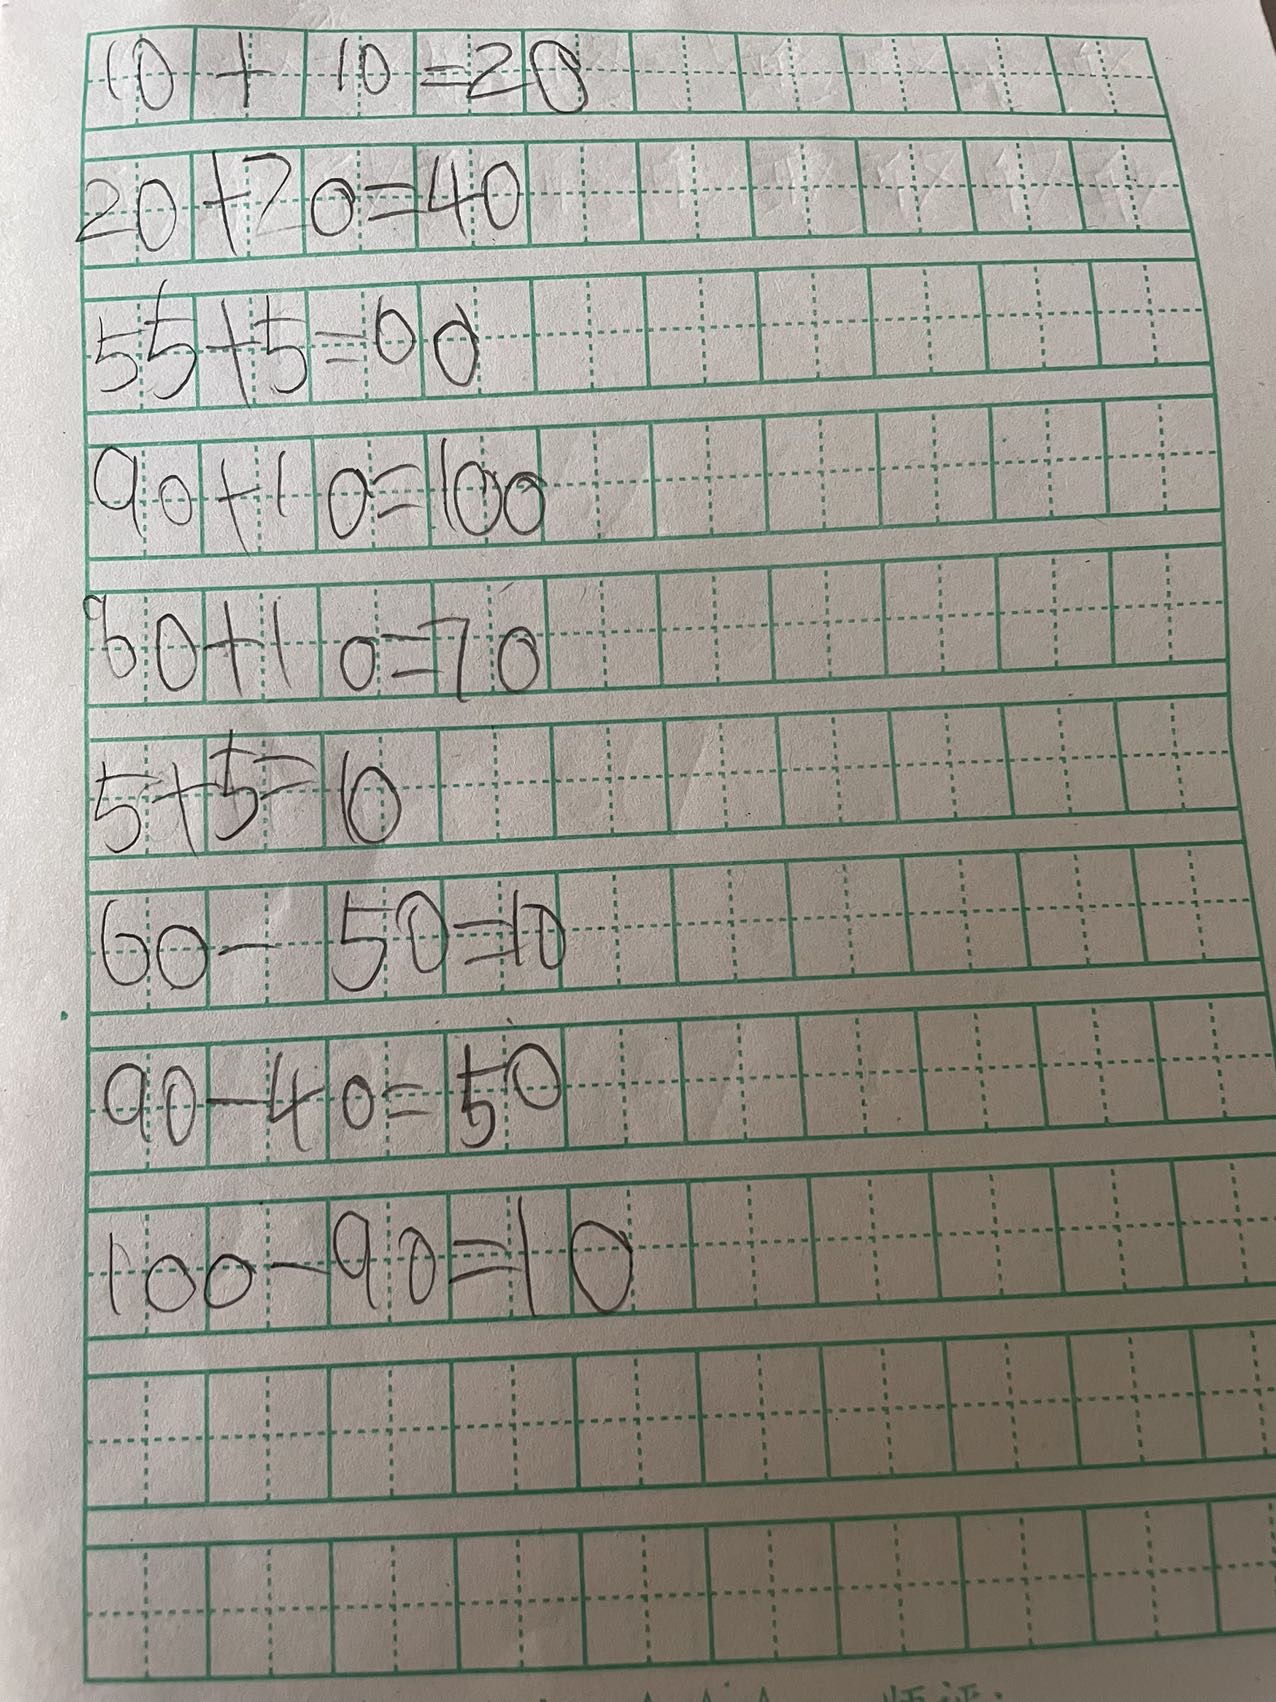 10+10=20
20+20=40
55+5=60
90+10=100
60+10=70
5+5=10
60-50=10
90-40=50
100-90=10
师评: